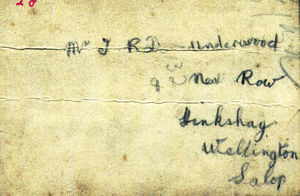 28
Mr J R D Underwood
9 New Row
Hinkshay
Wellington
Salop